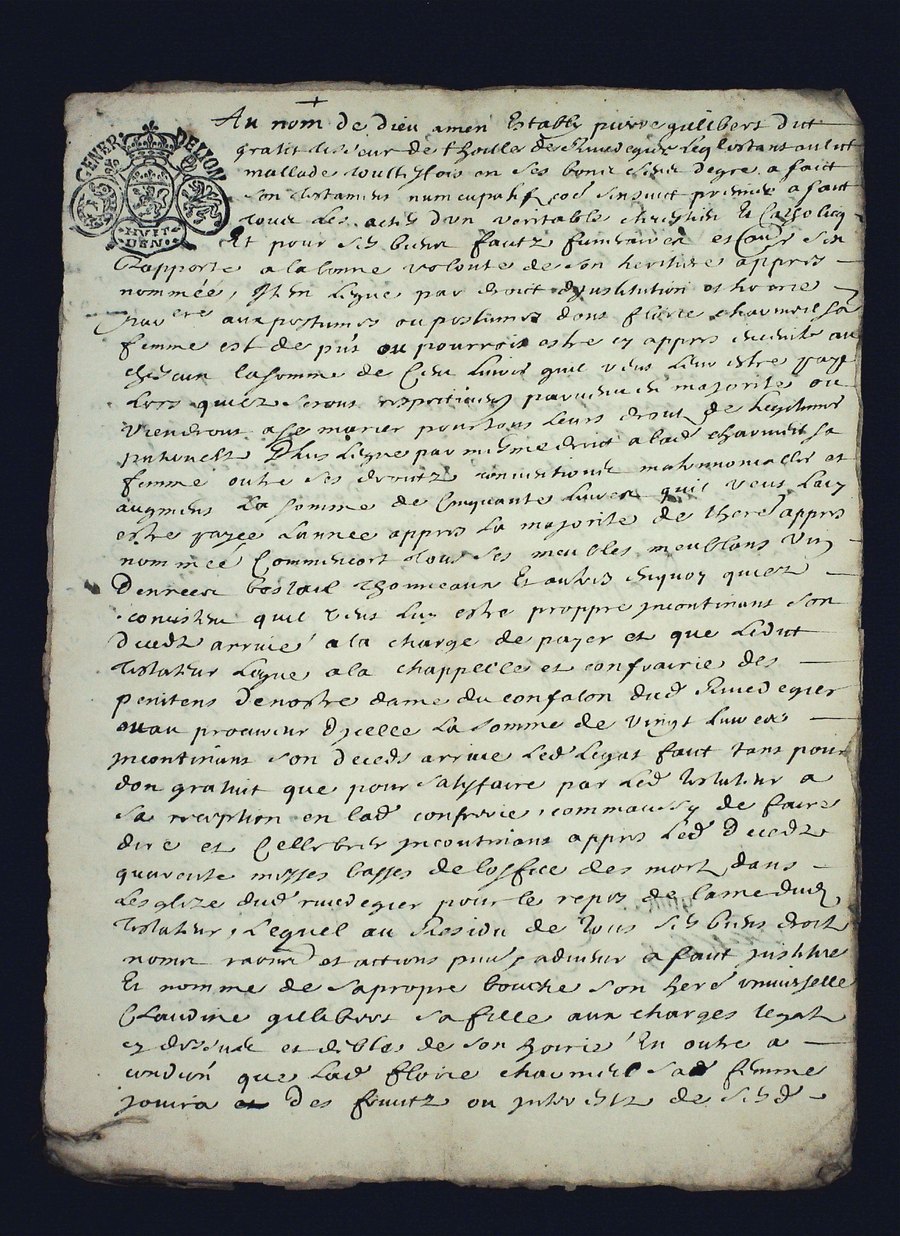 GENER. DE LION
HVIT
DEN
Au nom de dieu amen Estably pierre gilibert dit
gratit de Rivedegier
mallade touttesfois en ses bons sens a fait
son testament nuncupatif premier a fait
tous les actes d'un veritable chrestien Et Catholicq
Et pour ses funerailles et
Rapporte a la bonne volonte de son heritiere appres
nommée, Item legue par droict dinstitution et hoirie
aux postumes ou postumes dont flurie charmeil sa
femme est de pnt ou pourroit estre cy appres enceinte au
chescun la somme de Cent livres quil veut leur estre paye
Lors quilz seront parvenus en majorite ou
viendront a se marier pour tous leurs droitz de legitime
Plus legue par mesme droit a lad charmeil sa
femme outre ses droitz matrimonialles et
augmens La somme de Cinquante livres quil veut Luy
estre payée Lannée appres La majorite de lhere appres
nommée tous ses meubles meublans vin
Denrees bestail Thonneaux Et autres enquoy quilz
consistent quil veut Luy estre proppre incontinant son
deceds arrivé a la charge de payer et que Ledit
testateur Legue a la chappelle et confrairie des
penitens De nostre dame du confalon dud Rivedegier
ou au procureur dycelle La somme de vingt livres
incontinant son deceds arrive Led legat fait tant pour
don gratuit que pour satisfaire par Led testateur a
sa reception en lad confrerie, comme aussy de faire
dire et Cellebrer incontinant appres Led deceds
quarente messes basses de loffice des mort dans
Lesglize dud rivedegier pour le repos de lame dud
testateur, Lequel au Residu de tous ses biens droit
noms raisons et actions a fait institue
Et nomme de sa propre bouche son here universelle
Claudine gilibert sa fille aux charges legat
cy dessus et debtes de son hoirie En outre a
condion que Lad flurie charmeil sad femme
jouira des fruitz ou interestz de sesd